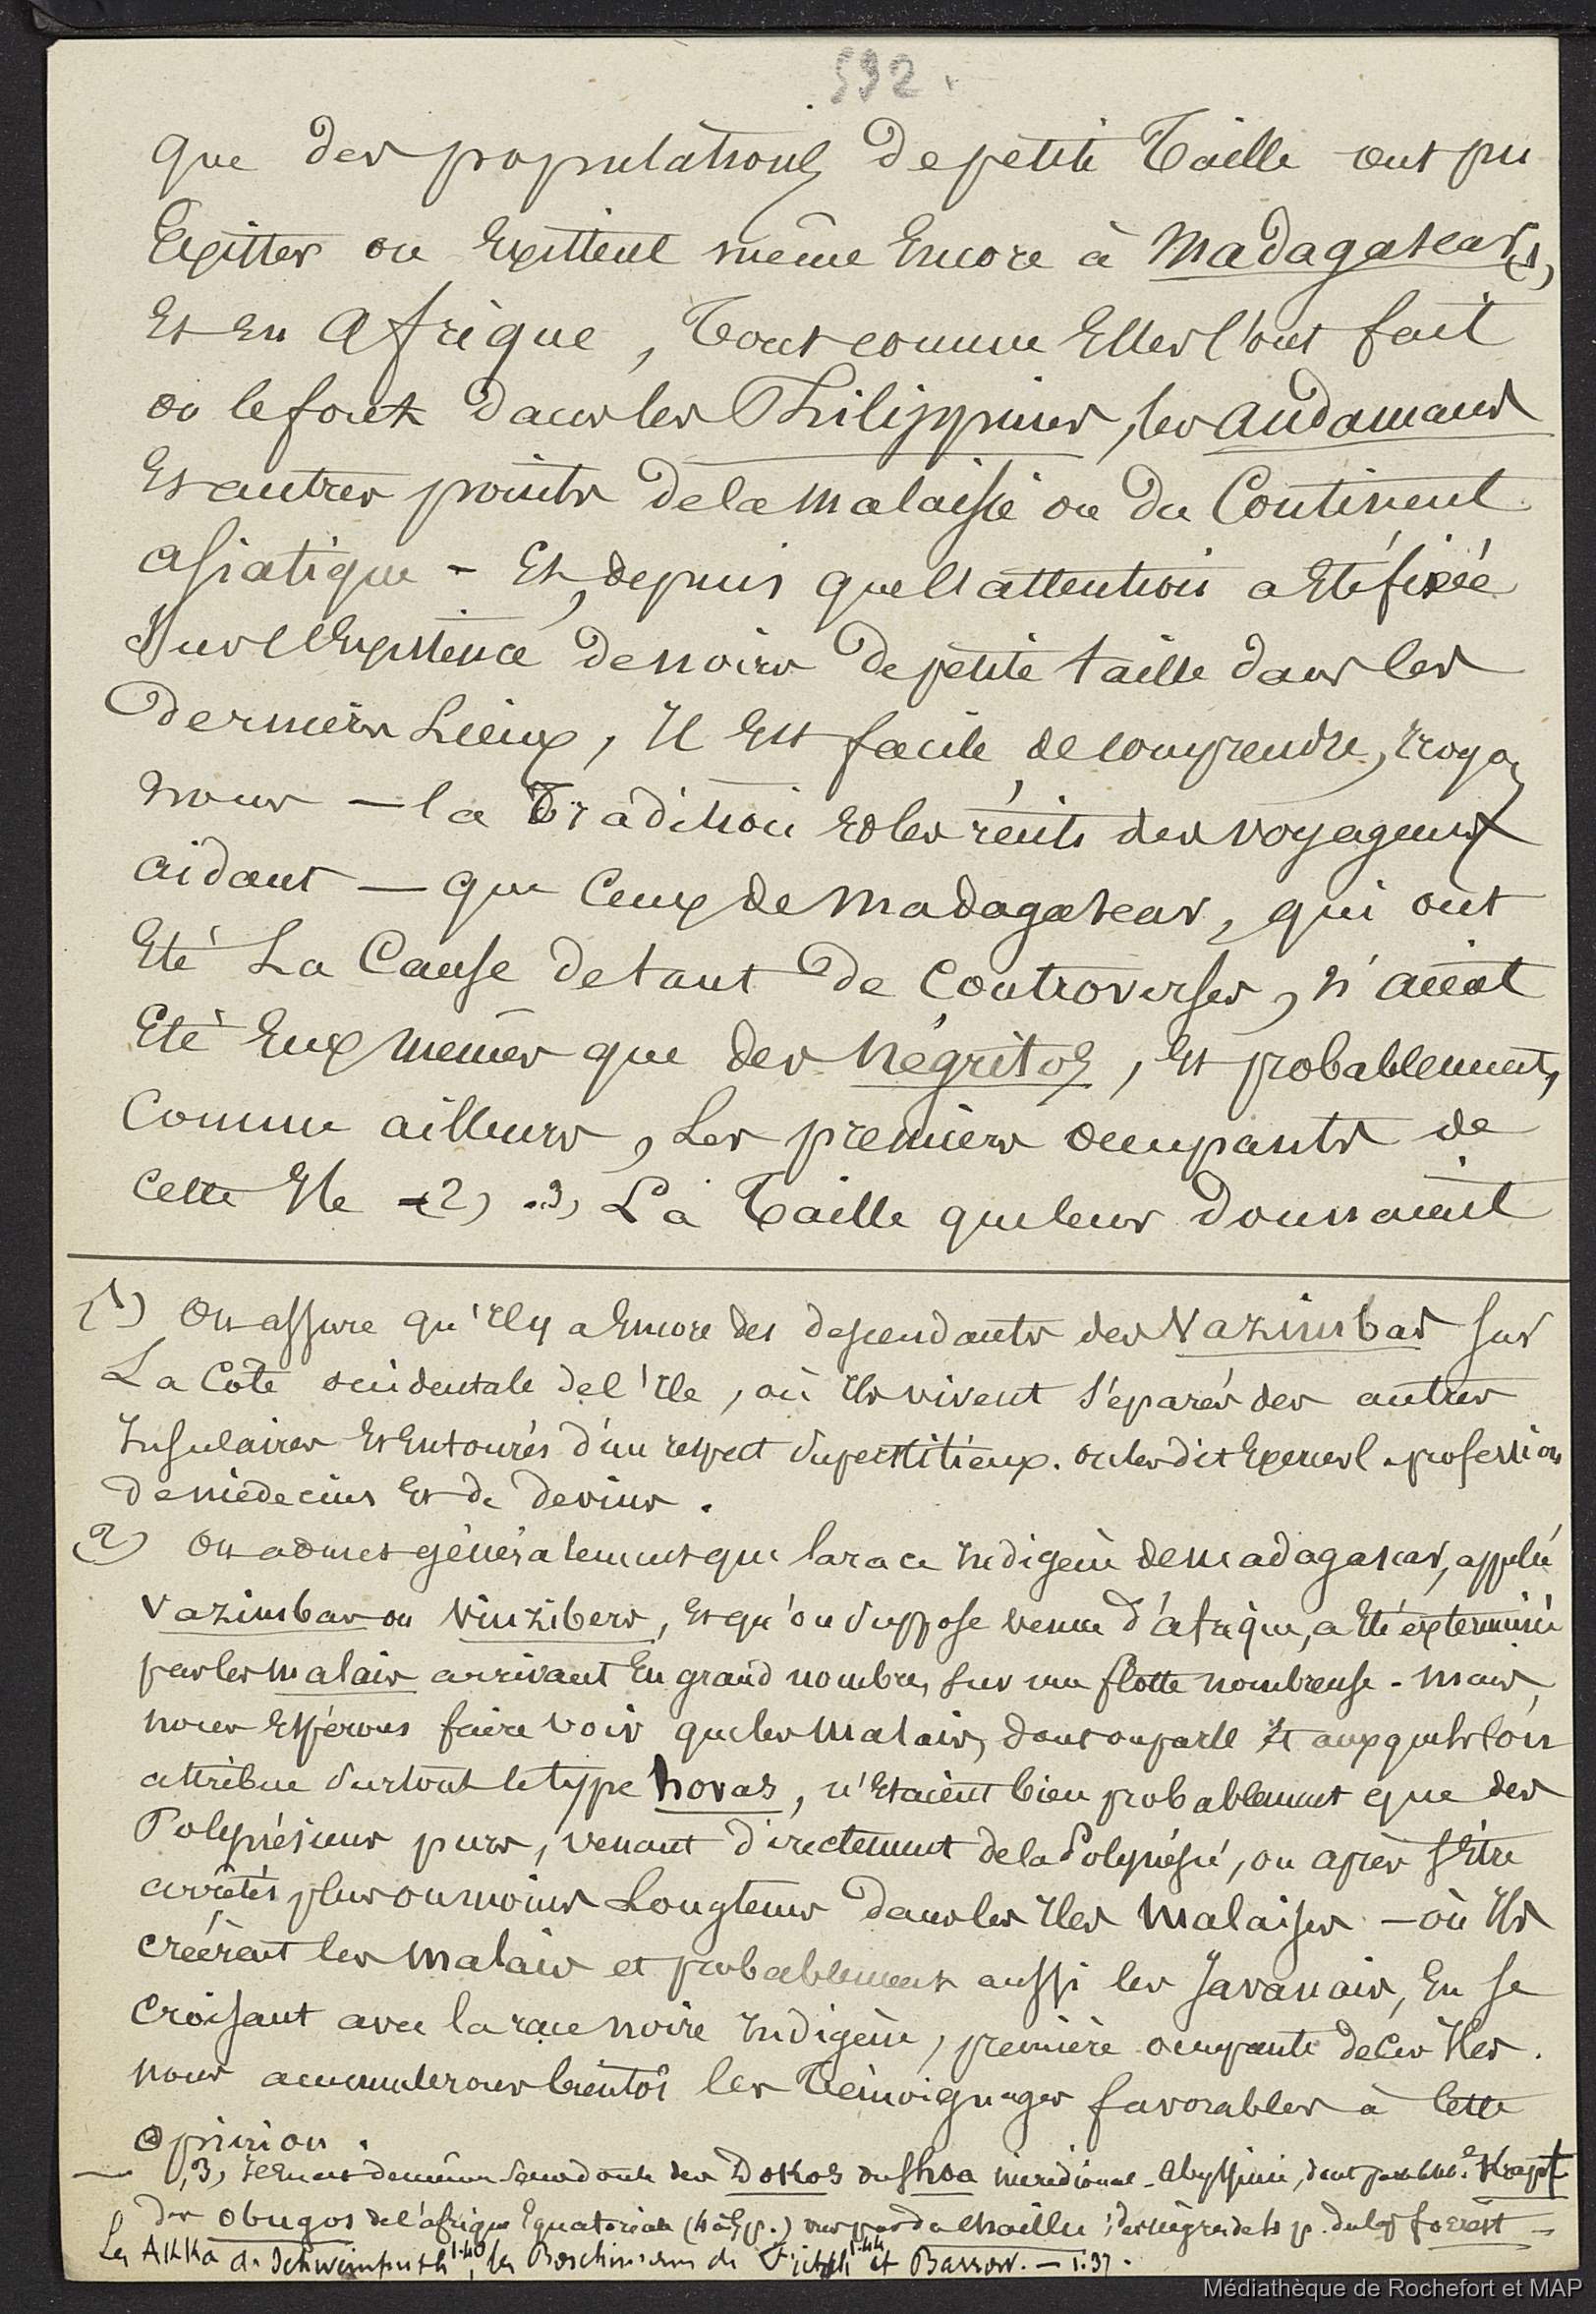 592.
que des populations de petite Taille ont pu
Exister ou Existent même Encore à Madagascar (1),
Et En afrique, Tout comme Elles l'ont fait
ou le font dans les Philippines, les andamans
Et autres points de la malaisie ou du Continent
asiatique - Et, depuis que l'attention a Eté fixée
sur l'Existence de noirs de petite taille dans les
derniers Lieux, Il Est facile de comprendre, croyons
nous — la Tradition et les récits des voyageurs
aidant — que Ceux de Madagascar, qui ont
Eté La Cause de tant de Controverses, n'aient
Eté Eux mêmes que des négritos, Et probablement,
Comme ailleurs, Les premiers occupants de
cette Ile - (2) . 3) La Taille que leur donnaient
(1) On assure qu'Il y a Encore des descendants des Vazimbas sur
La Côte occidentale de l'Ile, où Ils vivent séparés des autres
Insulaires Et Entourés d'un respect superstitieux. on les dit Exercer la profession
de médecins Et de devins.
(2) On admet généralement que la race Indigène de Madagascar, appelée
Vazimbas ou Vinzibers, Et qu'on suppose venue d'afrique, a Eté exterminée
par les malais arrivant En grand nombre, sur une flotte nombreuse - mais,
nous Espérons faire voir que les Malais, dont on parle Et auxquels l'on
attribue surtout le type hovas, n'Etaient bien probablement que des
Polynésiens purs, venant directement de la Polynésie, ou après s'Etre
arrêtés plus ou moins Longtems dans les Iles Malaises - où Ils
créèrent les malais et probablement aussi les Javanais, En se
Croisant avec la race noire Indigène, première occupante de Ces Iles.
nous accumulerons bientôt les Témoignages favorables à Cette
Opinion.
— (3) Il En est de même sans doute des Dokos du Shoa méridional - Abyssinie, dont parle Mr. Krapf
des Obugos de l'afrique Equatoriale vus par du Chaillu
Les AKKa de Schweinfurth 1.40, les Boschimans de 1.44 et Barrow. — 1.37.
Médiathèque de Rochefort et MAP